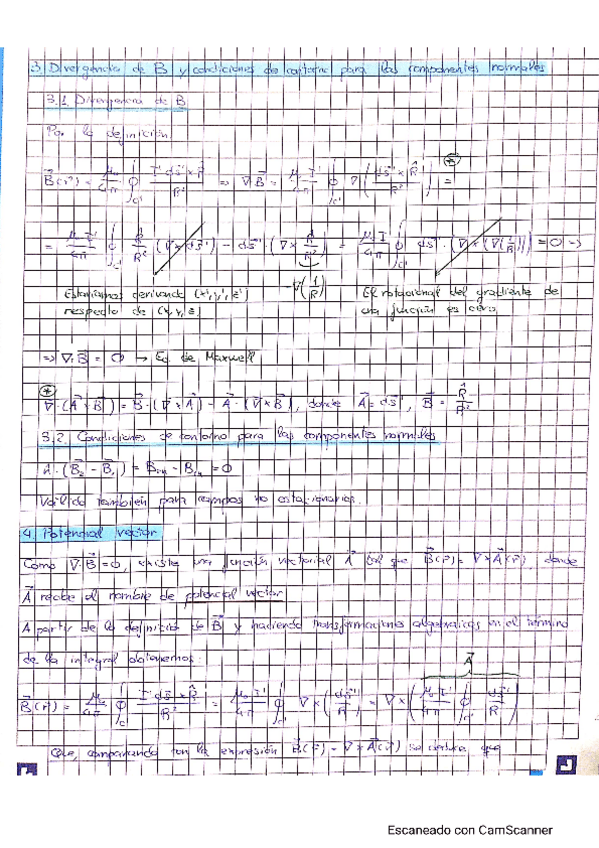 3 Divergencia de B y condiciones de contorno para las componentes normales
3.1 Divergencia de B
Por la definición:
B⃗(r⃗) = μ₀/4π ∮_C' I' ds⃗' × R̂ / R² ⇒ ∇·B⃗ = μ₀ I'/4π ∮_C' ∇ (ds⃗' × R̂ / R²) = ⊛
= μ₀ I'/4π ∮_C' R̂/R² (∇ × ds⃗') − ds⃗' · (∇ × R̂/R²) = μ₀ I'/4π ∮_C' ds⃗' · (∇ × (∇(1/R))) = 0 →
−∇(1/R)
Estaríamos derivando (x', y', z')
respecto de (x, y, z)
El rotacional del gradiente de
una función es cero.
⇒ ∇·B⃗ = 0 → Eq de Maxwell
⊛
∇·(A⃗ × B⃗) = B⃗·(∇ × A⃗) − A⃗·(∇ × B⃗), donde A⃗ = ds⃗', B⃗ = R̂/R²
3.2. Condiciones de contorno para las componentes normales
n·(B⃗₂ − B⃗₁) = B₂ₙ − B₁ₙ = 0
Válido también para campos no estacionarios.
4. Potencial vector
Como ∇·B⃗ = 0, existe una función vectorial A⃗ tal que B⃗(r⃗) = ∇ × A⃗(r⃗) donde
A⃗ recibe el nombre de potencial vector
A partir de la definición de B⃗ y haciendo transformaciones algebraicas en el término
de la integral obtenemos:
A⃗
B⃗(r⃗) = μ₀/4π ∮_C' I' ds⃗' × R̂ / R² = μ₀ I'/4π ∮_C' ∇ × (ds⃗'/R) = ∇ × (μ₀ I'/4π ∮_C' ds⃗'/R)
Que, comparando con la expresión B⃗(r⃗) = ∇ × A⃗(r⃗) se deduce que
Escaneado con CamScanner